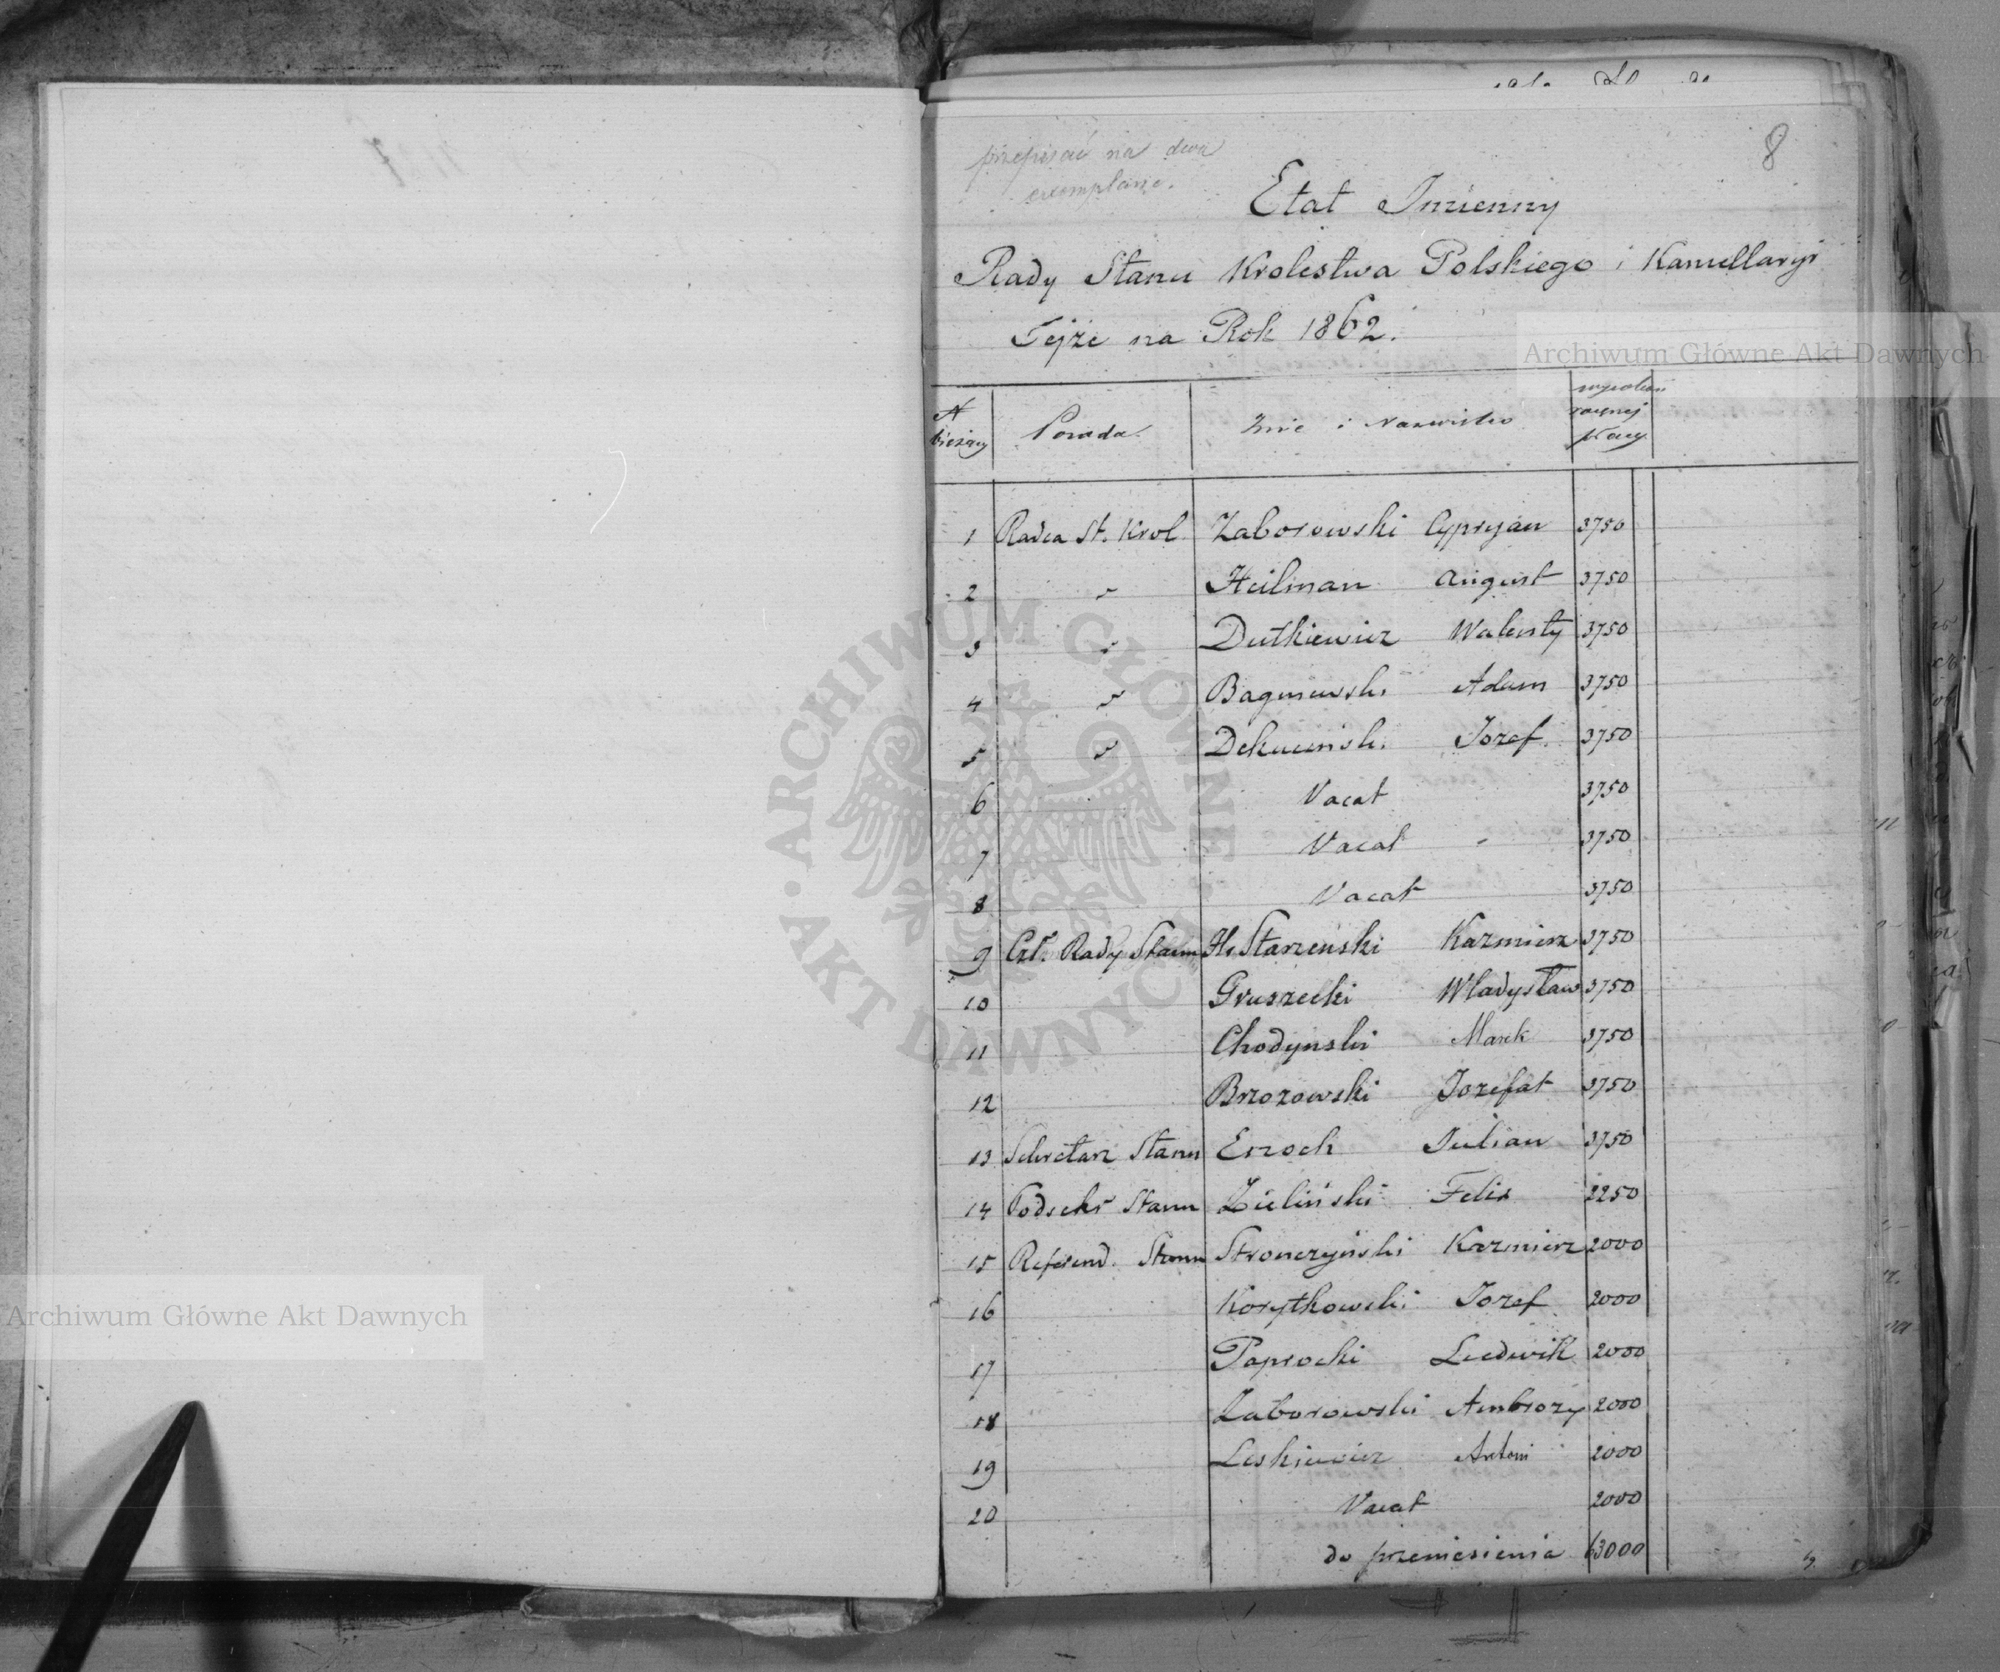 8
przepisać na dwa
exemplarze.
Etat Imienny
Rady Stanu Krolestwa Polskiego i Kancellaryi
Tejże na Rok 1862.
Archiwum Główne Akt Dawnych
N bieżący Posada Imie i Nazwisko wysokość rocznej płacy
1 Radca St. Krol Zaborowski Cypryan 3750
2 " Heilman August 3750
3 " Dutkiewicz Walenty 3750
4 " Bagniewski Adam 3750
5 " Dekuciński Jozef 3750
6 Vacat 3750
7 Vacat " 3750
8 Vacat 3750
9 Czł. Rady Stanu Hr Starzeński Kazmierz 3750
10 Gruszecki Władysław 3750
11 Chodyński Marek 3750
12 Brzozowski Jozefat 3750
13 Sekretarz Stanu Enoch Julian 3750
14 Podsekr Stanu Zieliński Felix 2250
15 Referend. Stanu Stronczyński Kazmierz 2000
16 Korytkowski Jozef 2000
Archiwum Główne Akt Dawnych
17 Paprocki Ludwik 2000
18 Zaborowski Ambrozy 2000
19 Leskiewicz Antoni 2000
20 Vacat 2000
do przeniesienia 63000
ARCHIWUM GŁÓWNE AKT DAWNYCH